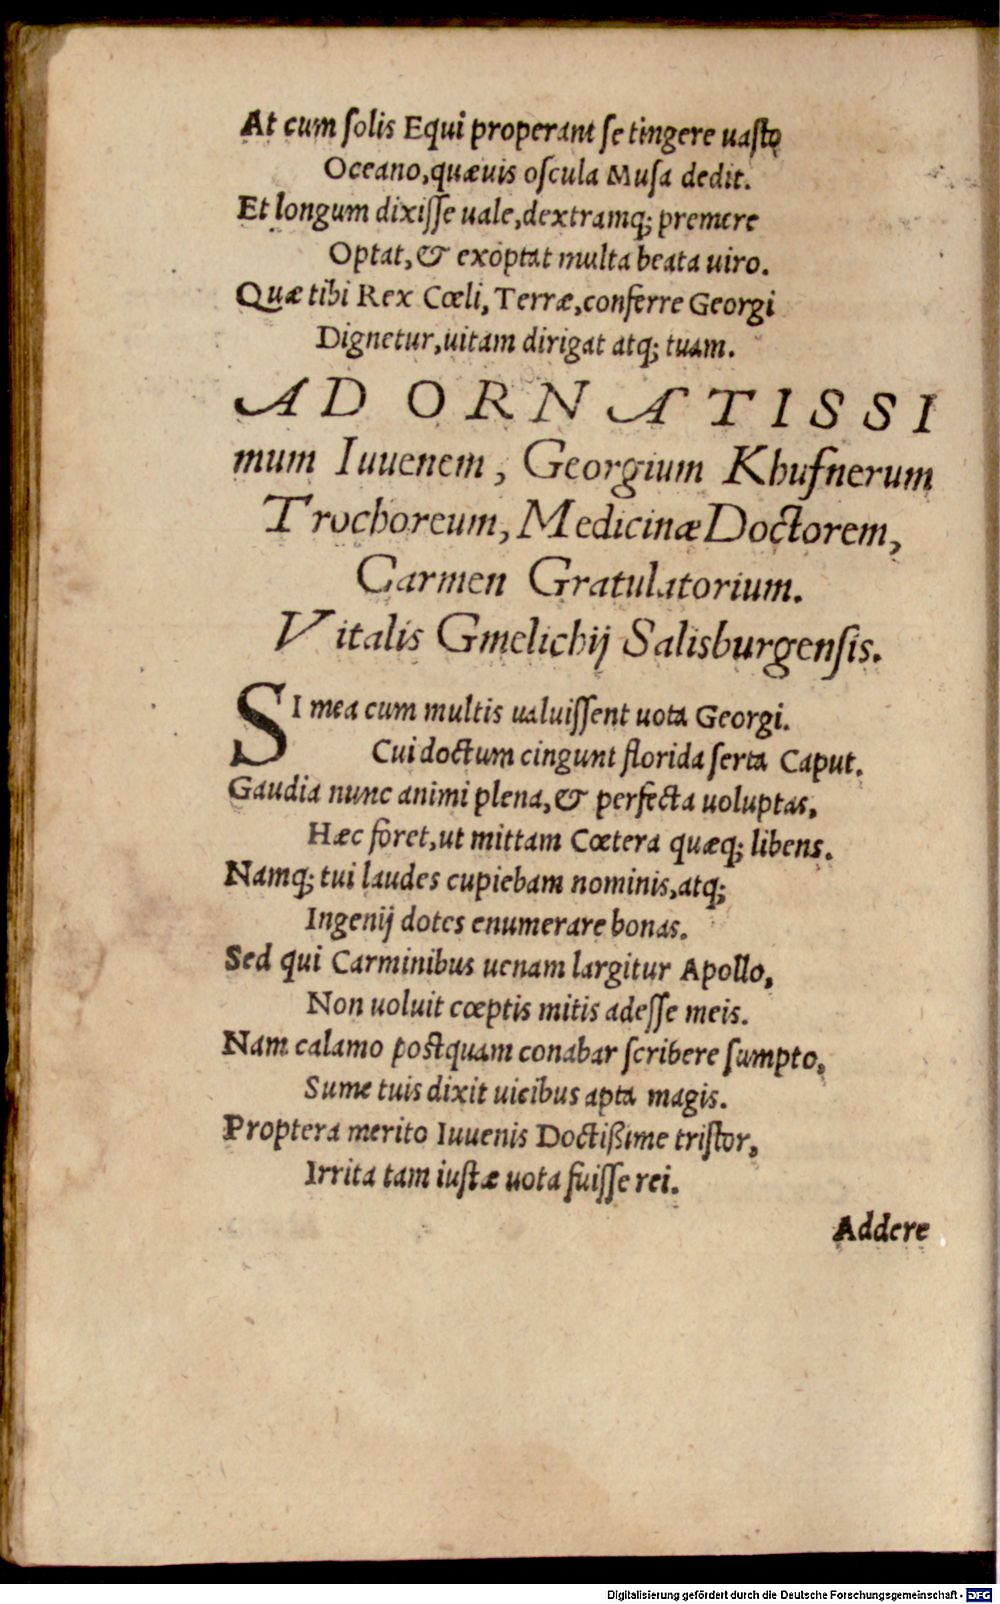 At cum ſolis Equi properant ſe tingere uaſto
Oceano, quæuis oſcula Muſa dedit.
Et longum dixiſſe uale, dextramq; premere
Optat, & exoptat multa beata uiro.
Quæ tibi Rex Cœli, Terræ, conferre Georgi
Dignetur, uitam dirigat atq; tuam.
AD ORNATISSI
mum Iuuenem, Georgium Khufnerum
Trochoreum, Medicinæ Doctorem,
Carmen Gratulatorium.
Vitalis Gmelichij Salisburgenſis.
SI mea cum multis ualuiſſent uota Georgi.
Cui doctum cingunt florida ſerta Caput.
Gaudia nunc animi plena, & perfecta uoluptas,
Hæc foret, ut mittam Cœtera quæq; libens.
Namq; tui laudes cupiebam nominis, atq;
Ingenij dotes enumerare bonas.
Sed qui Carminibus uenam largitur Apollo,
Non uoluit cœptis mitis adeſſe meis.
Nam calamo poſtquam conabar ſcribere ſumpto,
Sume tuis dixit uicibus apta magis.
Proptera merito Iuuenis Doctißime triſtor,
Irrita tam iuſtæ uota fuiſſe rei.
Addere
Digitalisierung gefördert durch die Deutsche Forschungsgemeinschaft - DFG